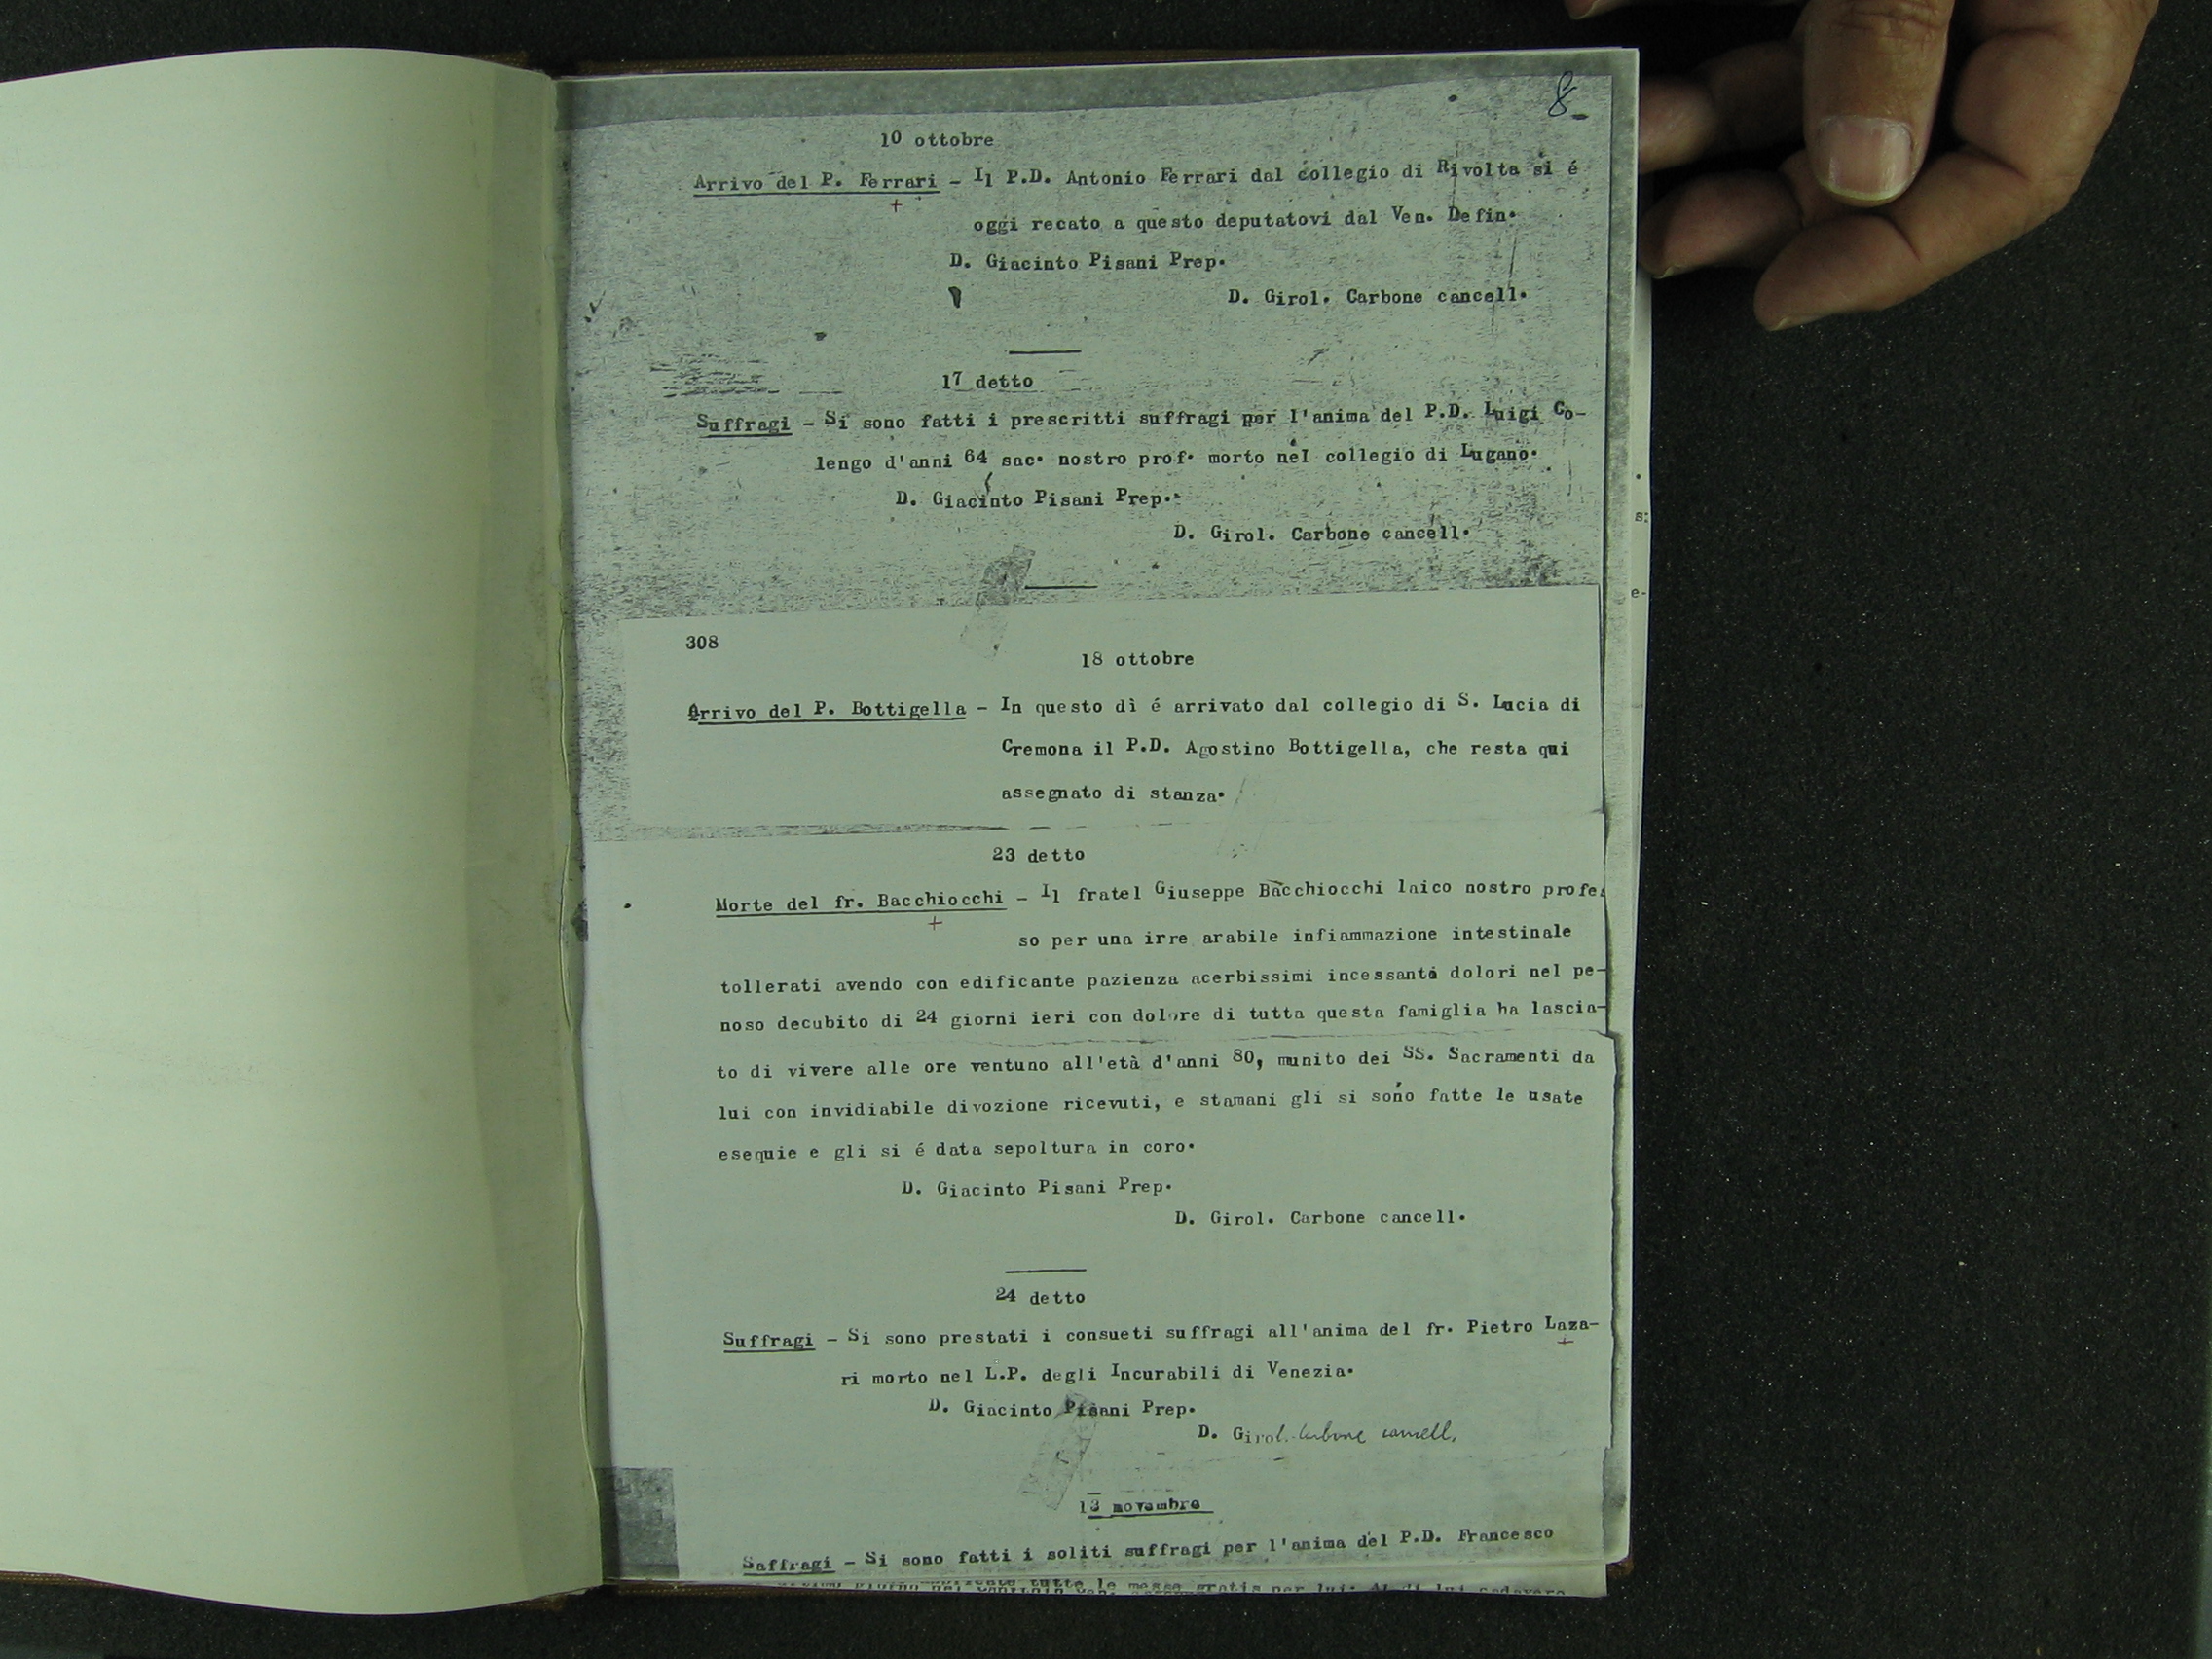 8
10 ottobre
Arrivo del P. Ferrari - Il P.D. Antonio Ferrari dal collegio di Rivolta si é
oggi recato a questo deputatovi dal Ven. Defin.
D. Giacinto Pisani Prep.
D. Girol. Carbone cancell.
17 detto
Suffragi - Si sono fatti i prescritti suffragi per l'anima del P.D. Luigi Co-
lengo d'anni 64 sac. nostro prof. morto nel collegio di Lugano.
D. Giacinto Pisani Prep.
D. Girol. Carbone cancell.
308
18 ottobre
Arrivo del P. Bottigella - In questo dì é arrivato dal collegio di S. Lucia di
Cremona il P.D. Agostino Bottigella, che resta qui
assegnato di stanza.
23 detto
Morte del fr. Bacchiocchi - Il fratel Giuseppe Bacchiocchi laico nostro profes
so per una irre arabile infiammazione intestinale
tollerati avendo con edificante pazienza acerbissimi incessanti dolori nel pe-
noso decubito di 24 giorni ieri con dolore di tutta questa famiglia ha lascia-
to di vivere alle ore ventuno all'età d'anni 80, munito dei SS. Sacramenti da
lui con invidiabile divozione ricevuti, e stamani gli si sono fatte le usate
esequie e gli si é data sepoltura in coro.
D. Giacinto Pisani Prep.
D. Girol. Carbone cancell.
24 detto
Suffragi - Si sono prestati i consueti suffragi all'anima del fr. Pietro Laza-
ri morto nel L.P. degli Incurabili di Venezia.
D. Giacinto Pisani Prep.
D. Girol. Carbone cancell.
13 novembre
Saffragi - Si sono fatti i soliti suffragi per l'anima del P.D. Francesco
tutte le messe gratis per lui